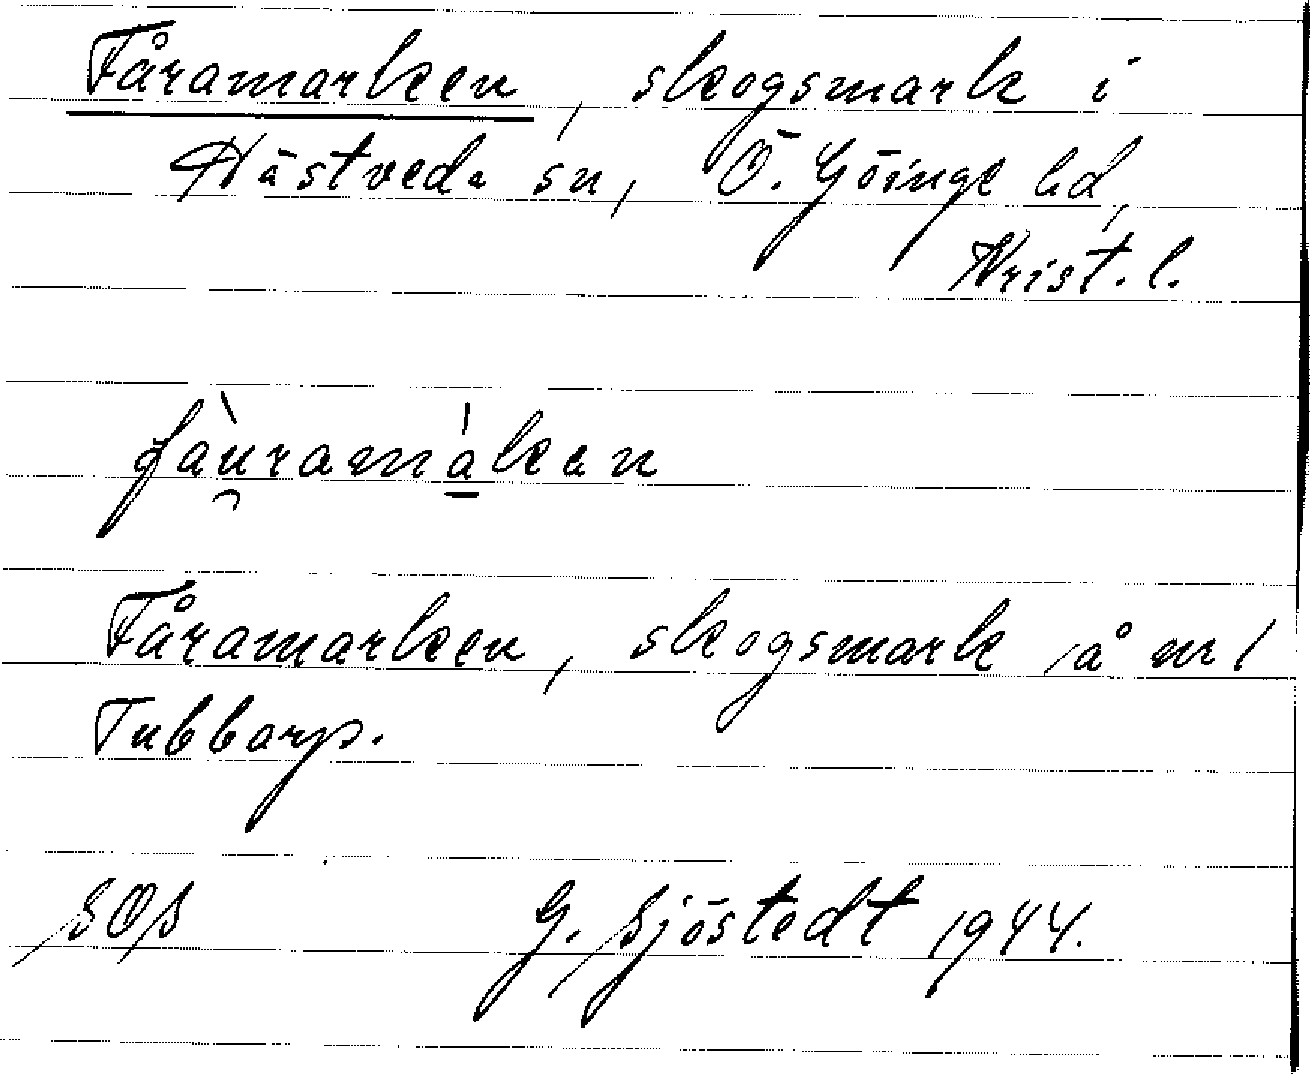 Fåramarken, skogsmark i
Hästveda sn, Ö. Göinge hd,
Krist. l.
fàu̯ramá̱kan
Fåramarken, skogsmark å nr 1
Tubbarp.
SOS G. Sjöstedt 1944.